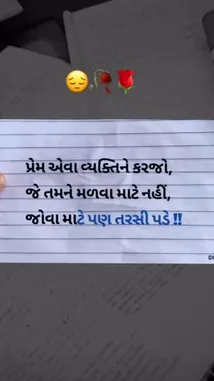 😔🥀🌹
પ્રેમ એવા વ્યક્તિને કરજો,
જે તમને મળવા માટે નહીં,
જોવા માટે પણ તરસી પડે !!